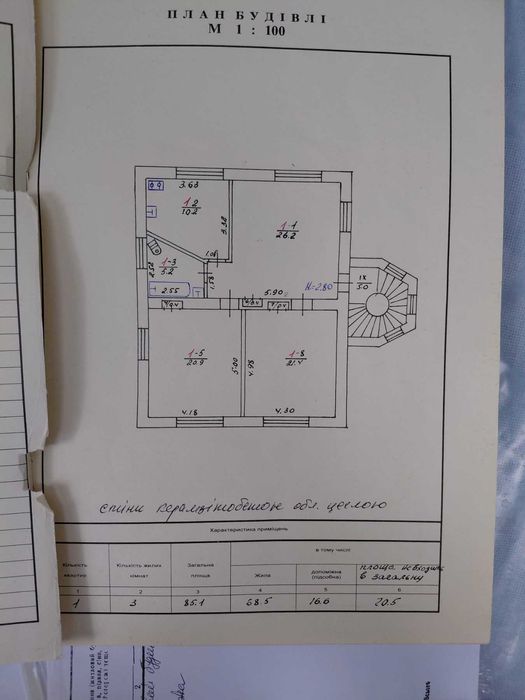 ПЛАН БУДІВЛІ
М 1 : 100
3.68
1-2
10.2
3.38
1-1
26.2
1-3
5.2
2.52
1.58
2.55
5.90
Н-2.80
IX
5.0
1-5
20.9
5.00
4.98
1-8
21.4
4.18
4.30
стіни керамзітобетон обл. цеглою
Характеристика приміщень
Кількість квартир
Кількість жилих кімнат
Загальна площа
в тому числі
Жила
допоміжна (підсобна)
площа
в загальну
1 2 3 4 5 6
1 3 85.1 68.5 16.6 20.5